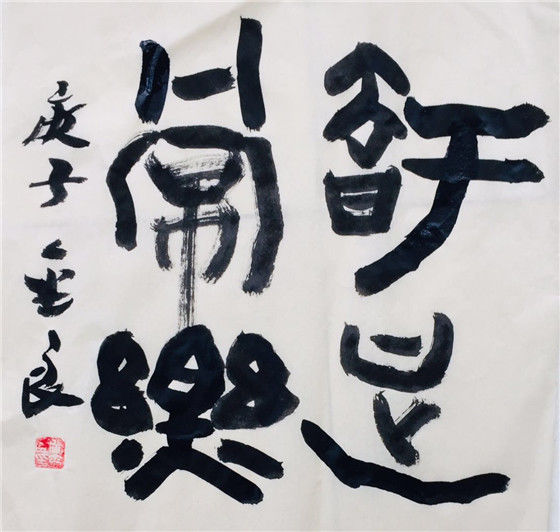 知足
常樂
庚子金良